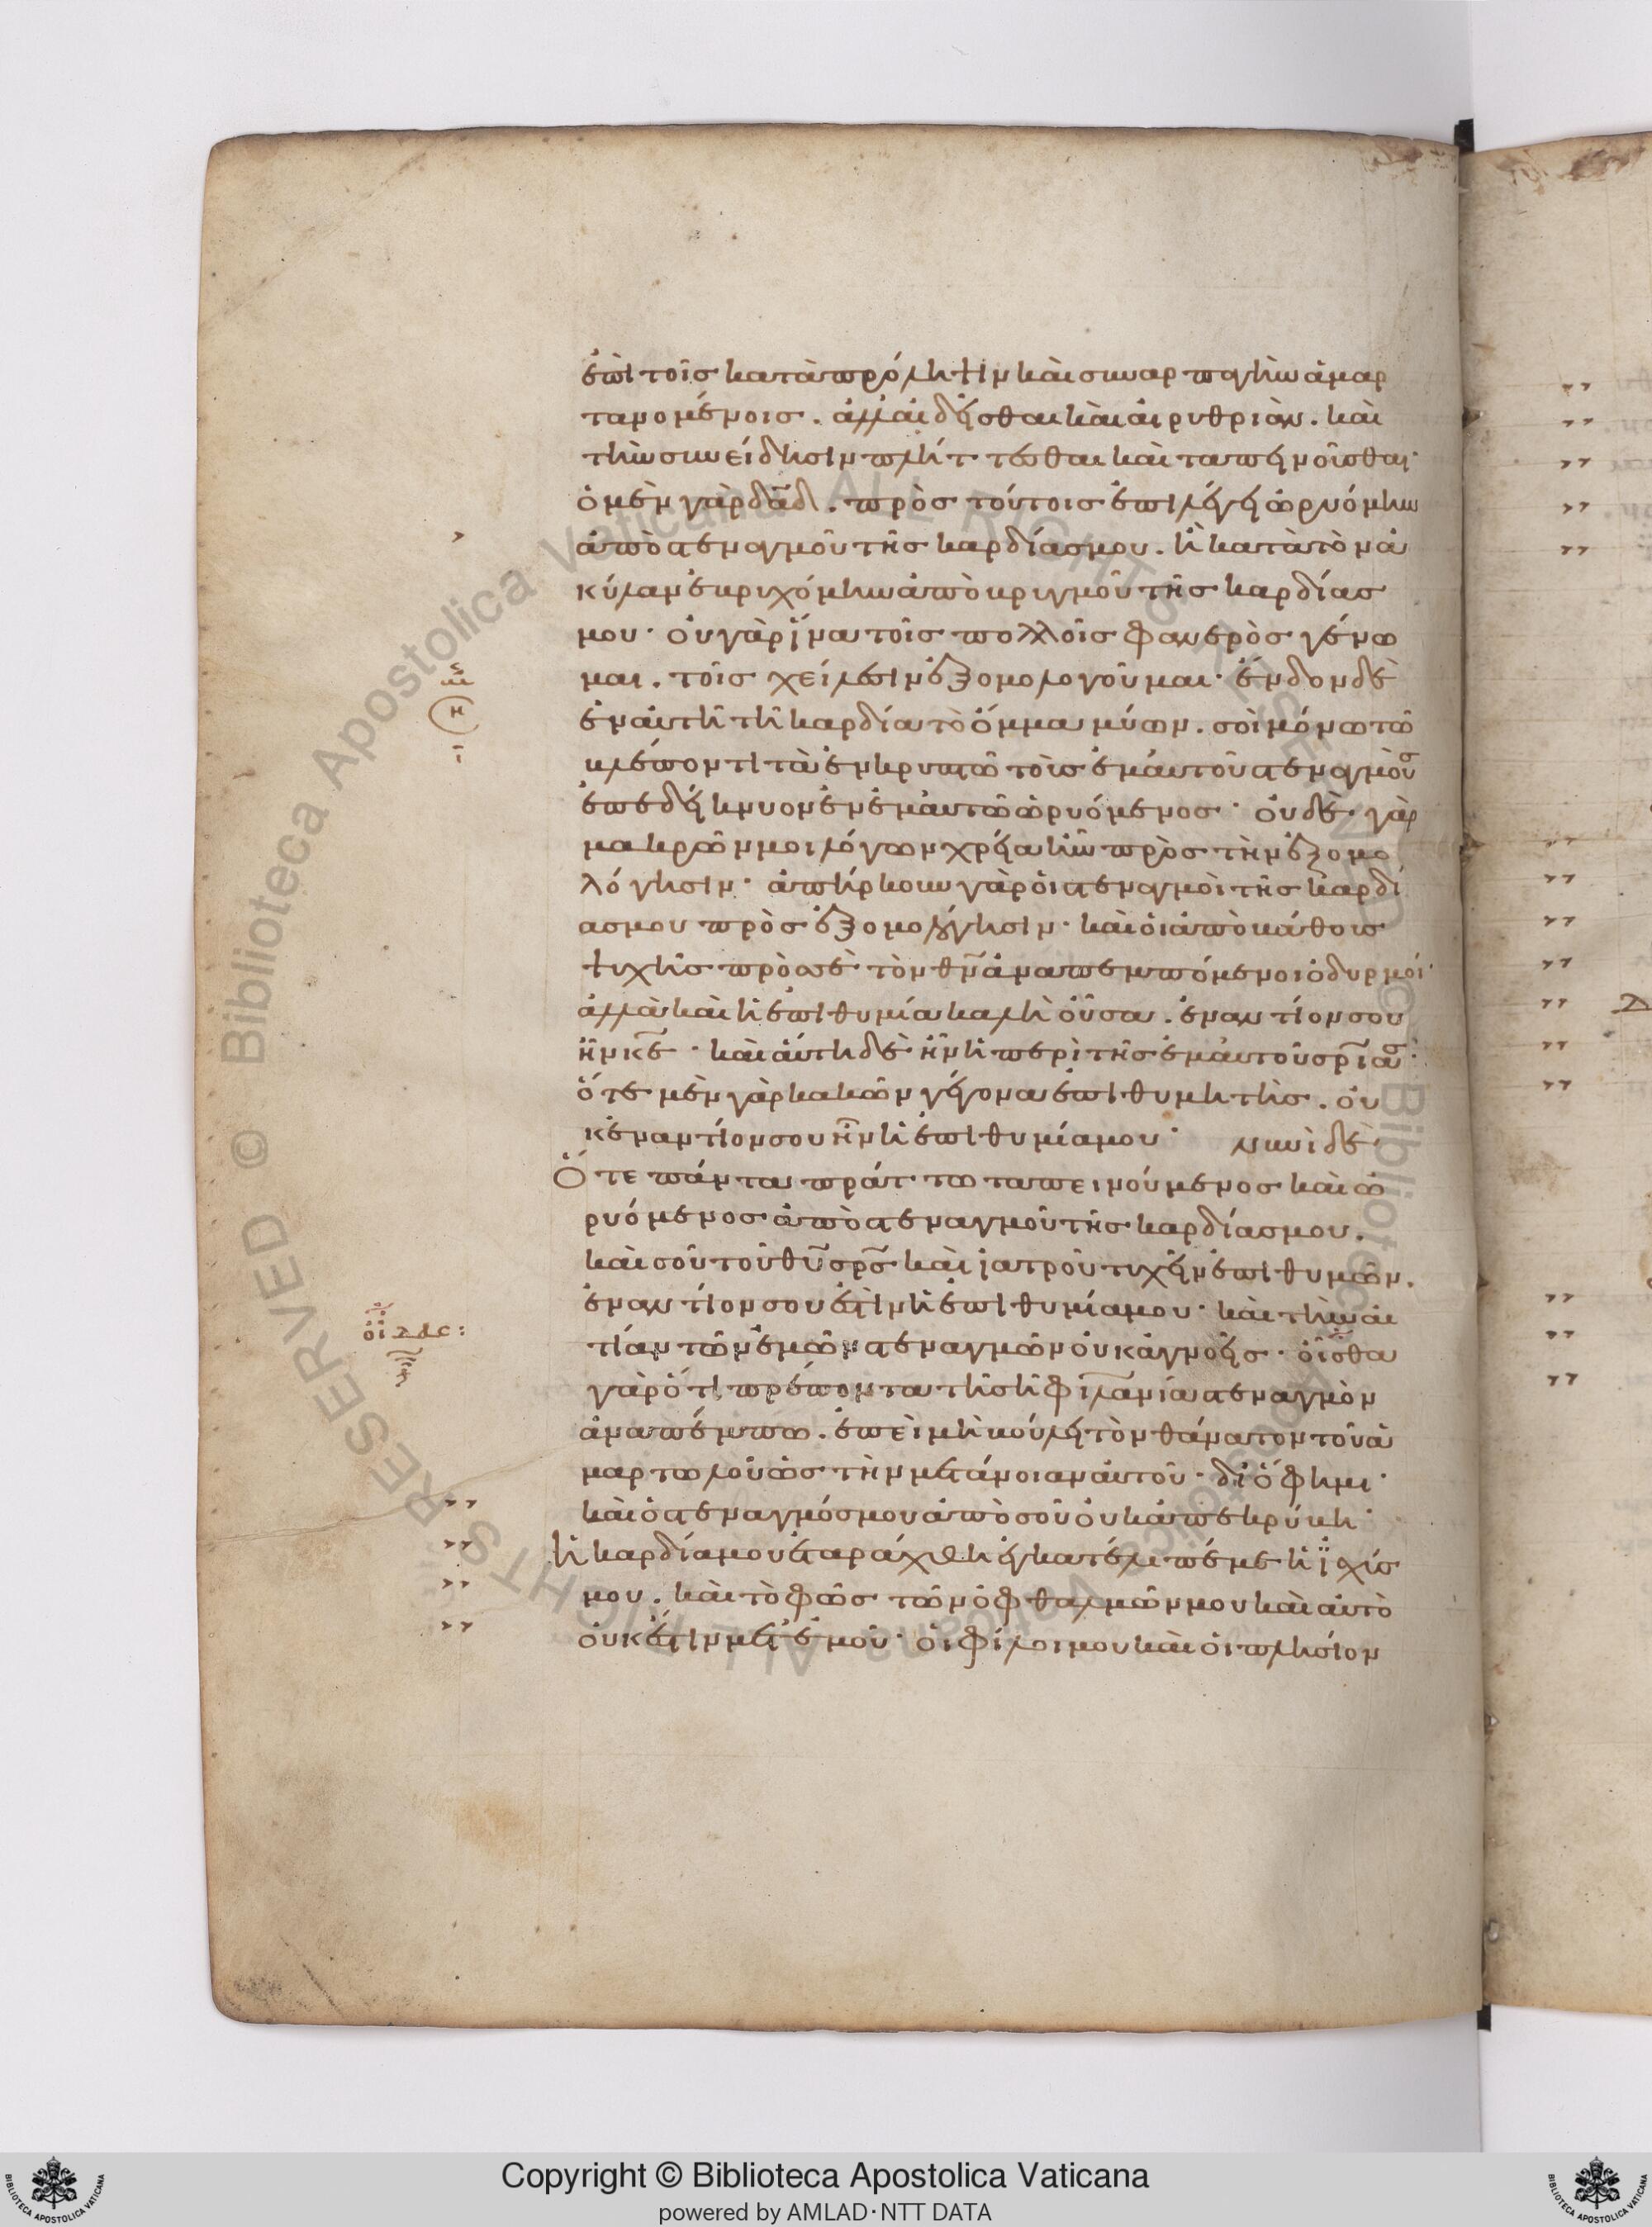 ἐπὶ τοῖς κατὰ πρόληψιν καὶ συναρπαγὴν ἁμαρ
τανομένοις. ἀλλ' αἰδεῖσθαι καὶ ἐρυθριᾶν. καὶ
τὴν συνείδησιν πλήττεσθαι καὶ ταπεινοῦσθαι·
ὁ μὲν γὰρ δᾱδ. πρὸς τούτοις ἐπιλέγει ὠρυόμην
ἀπὸ στεναγμοῦ τῆς καρδίας μου. ἢ κατὰ τὸν ἀ
κύλαν ἐβριχόμην ἀπὸ βριγμοῦ τῆς καρδίας
μου· οὐ γὰρ ἵνα τοῖς πολλοῖς φανερὸς γένω
μαι. τοῖς χείλεσιν ἐξομολογοῦμαι· ἔνδον δὲ
ἐν αὐτῇ τῇ καρδία τὸ ὄμμα μύων. σοὶ μόνω τῶ
βλέποντι τὰ ἐν κρυπτῶ τοὺς ἐμαυτοῦ στεναγμοὺς
ἐπεδείκνυον ἐν ἐμαυτῶ ὠρυόμενος· οὐδὲ γὰρ
μακρῶν μοι λόγων χρεία ἦν πρὸς τὴν ἐξομο
λόγησιν· ἀπήρκουν γὰρ οἱ στεναγμοὶ τῆς καρδί
ας μου πρὸς ἐξομολόγησιν· καὶ οἱ ἀπὸ βάθους
ψυχῆς πρὸς σὲ τὸν θν̄ ἀναπεμπόμενοι ὀδυρμοί·
ἀλλὰ καὶ ἡ ἐπιθυμία καλὴ οὖσα. ἐναντίον σου
ἦν κε̄· καὶ αὕτη δὲ ἦν ἡ περὶ τῆς ἐμαυτοῦ σρ̄ιας·
ὅτε μὲν γὰρ κακῶν γέγονα ἐπιθυμητὴς. οὐ
κ ἐναντίον σου ἦν ἡ ἐπιθυμία μου· νυνὶ δὲ
Ὅτε πάντα πράττω ταπεινούμενος καὶ ὠ
ρυόμενος ἀπὸ στεναγμοῦ τῆς καρδίας μου.
καὶ σοῦ τοῦ θῡ σρ̄ς καὶ ἰατροῦ τυχεῖν ἐπιθυμῶν.
ἐναντίον σου ἐστὶν ἡ ἐπιθυμία μου· καὶ τὴν αἰ
τίαν τῶν ἐμῶν στεναγμῶν οὐκ ἀγνοεῖς· οἶσθα
γὰρ ὅτι πρέποντα τῆ σῆ φιλανία στεναγμὸν
ἀναπέμπω. ἐπεὶ μὴ βούλει τὸν θάνατον τοῦ ἁ
μαρτωλοῦ ὡς τὴν μετάνοιαν αὐτοῦ· διό φημι·
καὶ ὁ στεναγμός μου ἀπὸ σοῦ οὐκ ἀπεκρύβη·
ἡ καρδία μου ἐταράχθη ἐγκατέλιπέ με ἡ ἰσχύς
μου. καὶ τὸ φῶς τῶν ὀφθαλμῶν μου καὶ αὐτὸ
οὐκ ἔστιν μετ' ἐμοῦ· οἱ φίλοι μου καὶ οἱ πλησίον
Copyright © Biblioteca Apostolica Vaticana
powered by AMLAD·NTT DATA